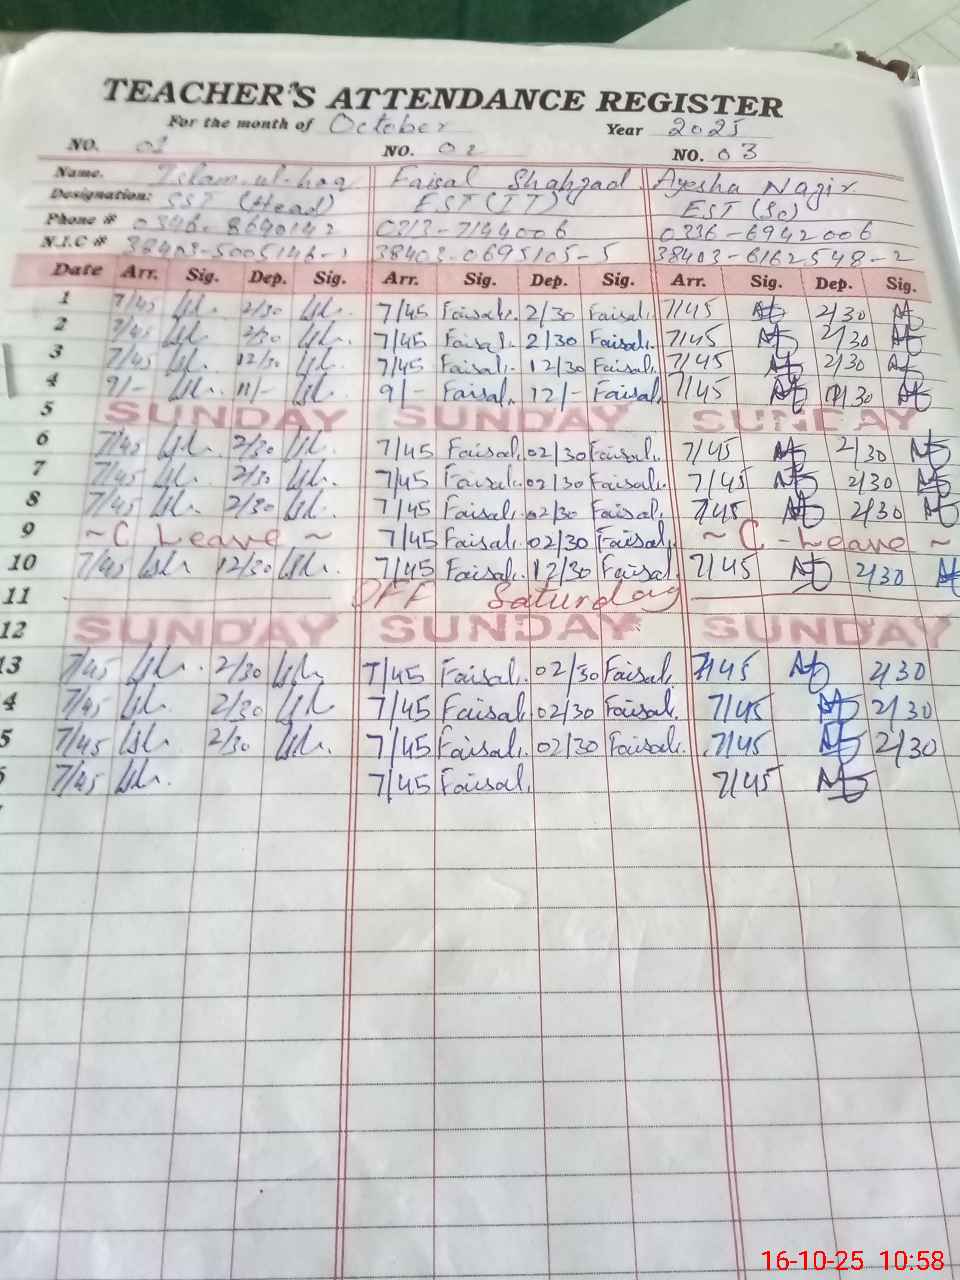 TEACHER'S ATTENDANCE REGISTER
For the month of October Year 2025
NO. 01 NO. 02 NO. 03
Name. Islam-ul-haq Faisal Shahzad Ayesha Nazir
Designation: SST (Head) EST (IT) EST (Sc)
Phone # 0346-8640142 0313-7144006 0336-6942006
N.I.C # 38403-0695105-5 38403-6162548-2
Date Arr. Sig. Dep. Sig. Arr. Sig. Dep. Sig. Arr. Sig. Dep. Sig.
1 7/45 2/30 7/45 Faisal. 2/30 Faisal. 7/45 2/30
2 7/45 2/30 7/45 Faisal. 2/30 Faisal. 7/45 2/30
3 7/45 12/30 7/45 Faisal. 12/30 Faisal. 7/45 2/30
4 9/- 11/- 9/- Faisal. 12/- Faisal. 7/45
5 SUNDAY SUNDAY SUNDAY
6 7/45 2/30 7/45 Faisal. 02/30 Faisal. 7/45 2/30
7 7/45 2/30 7/45 Faisal. 02/30 Faisal. 7/45 2/30
8 7/45 2/30 7/45 Faisal. 02/30 Faisal. 7/45 2/30
9 ~ C Leave ~ 7/45 Faisal. 02/30 Faisal. ~ C - Leave ~
10 7/45 12/30 7/45 Faisal. 12/30 Faisal. 7/45 2/30
11 OFF Saturday
12 SUNDAY SUNDAY SUNDAY
13 7/45 2/30 7/45 Faisal. 02/30 Faisal. 7/45 2/30
4 7/45 2/30 7/45 Faisal. 02/30 Faisal. 7/45 2/30
5 7/45 2/30 7/45 Faisal. 02/30 Faisal. 7/45 2/30
7/45 7/45 Faisal. 7/45
16-10-25 10:58